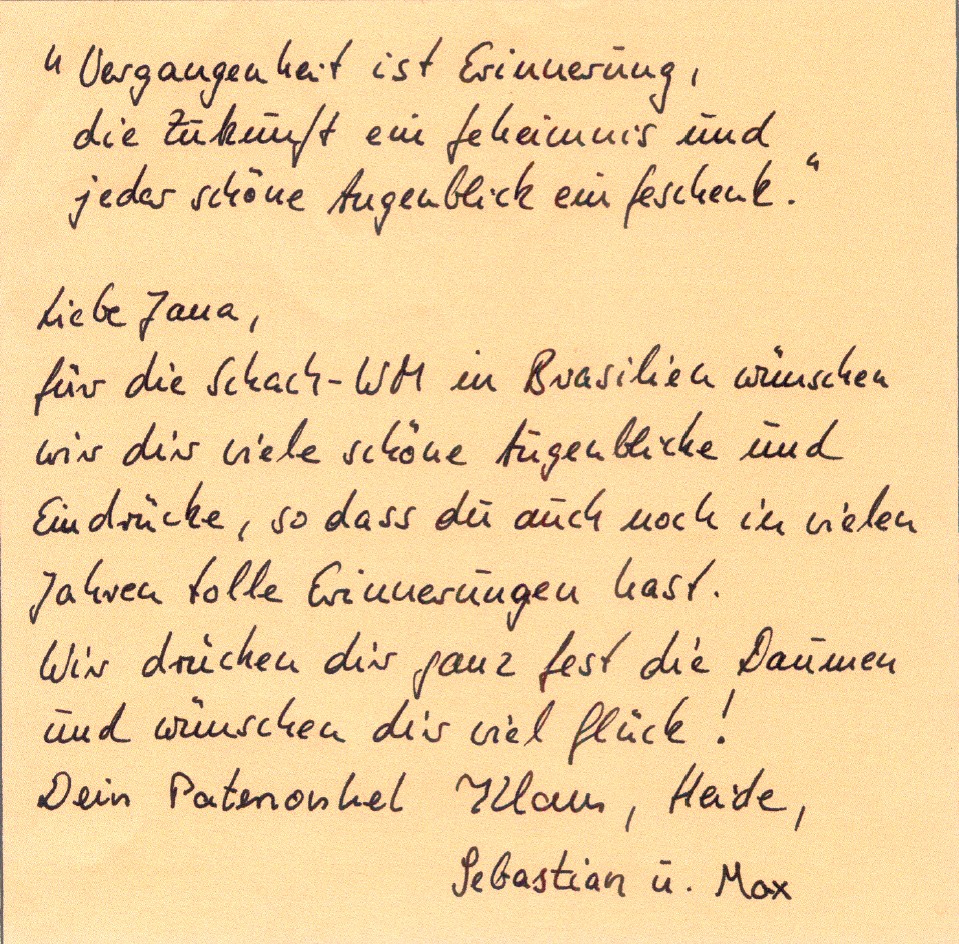 "Vergangenheit ist Erinnerung,
die Zukunft ein Geheimnis und
jeder schöne Augenblick ein Geschenk."
Liebe Jana,
für die Schach-WM in Brasilien wünschen
wir dir viele schöne Augenblicke und
Eindrücke, so dass du auch noch in vielen
Jahren tolle Erinnerungen hast.
Wir drücken dir ganz fest die Daumen
und wünschen dir viel Glück!
Dein Patenonkel Klaus, Heide,
Sebastian u. Max